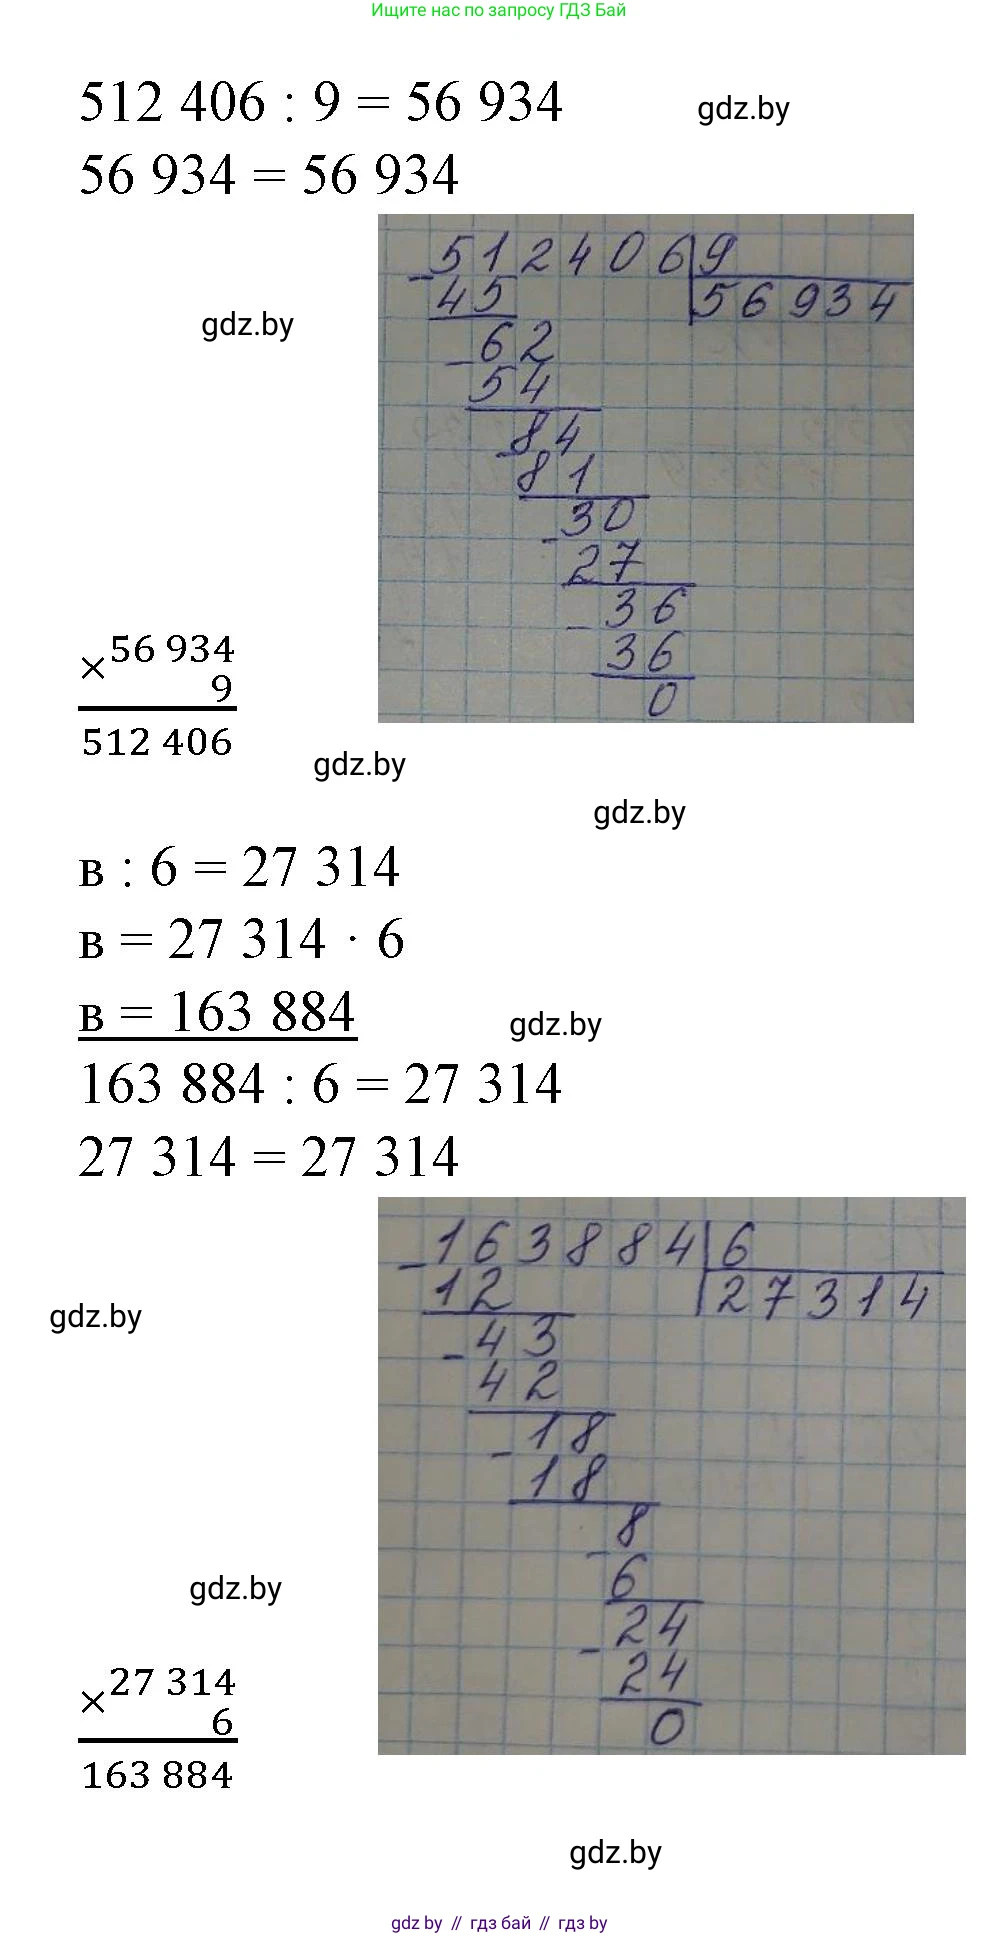 Ищите нас по запросу ГДЗ Бай
512 406 : 9 = 56 934
gdz.by
56 934 = 56 934
512406 9
45 56934
gdz.by
62
54
84
81
30
27
36
36
0
× 56 934
9
512 406
gdz.by
gdz.by
в : 6 = 27 314
в = 27 314 · 6
в = 163 884
gdz.by
163 884 : 6 = 27 314
27 314 = 27 314
-163884 6
12 27314
gdz.by
-43
42
-18
18
-8
6
gdz.by
-24
24
0
× 27 314
6
163 884
gdz.by
gdz by // гдз бай // гдз by